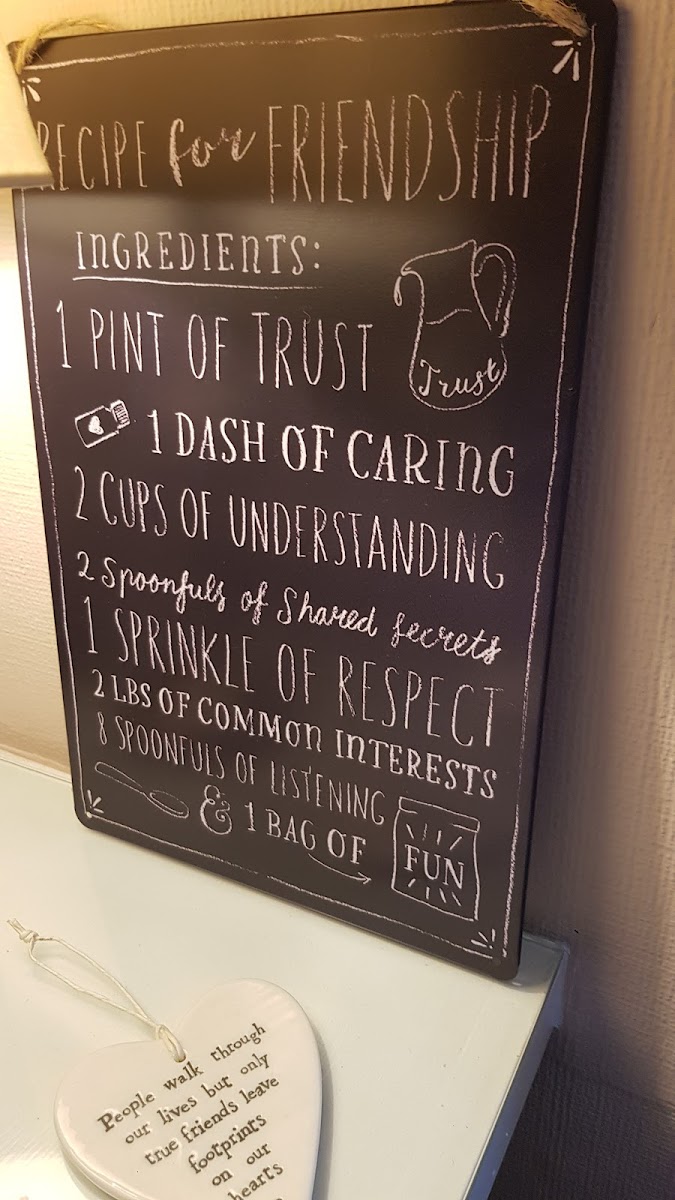 RECIPE for FRIENDSHIP
INGREDIENTS:
1 PINT OF TRUST
Trust
1 DASH OF CARING
2 CUPS OF UNDERSTANDING
2 Spoonfuls of Shared secrets
1 SPRINKLE OF RESPECT
2 LBS OF COMMON INTERESTS
8 SPOONFULS OF LISTENING
& 1 BAG OF
FUN
People walk through
our lives but only
true friends leave
footprints
on our
hearts